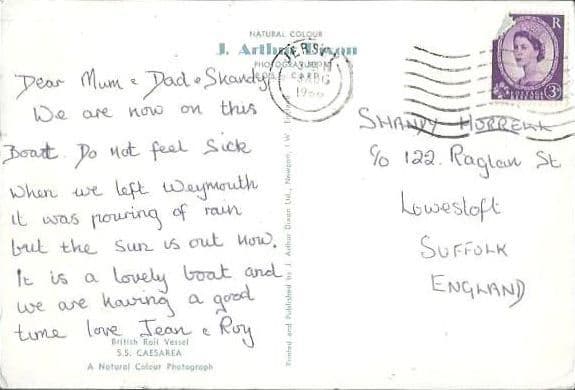 NATURAL COLOUR
J. Arthur Dixon
PHOTOGRAPH
JERSEY
AUG
Dear Mum & Dad & Shandy
We are now on this
Boat. Do not feel Sick
When we left Weymouth
it was pouring of rain
but the sun is out now.
It is a lovely boat and
we are having a good
time love Jean & Roy
British Rail Vessel
S.S. CAESAREA
A Natural Colour Photograph
Printed and Published by J. Arthur Dixon Ltd., Newport, I.W. England
R
POSTAGE REVENUE
3D
SHANDY HURRELL
c/o 122. Raglan St
Lowestoft
SUFFOLK
ENGLAND